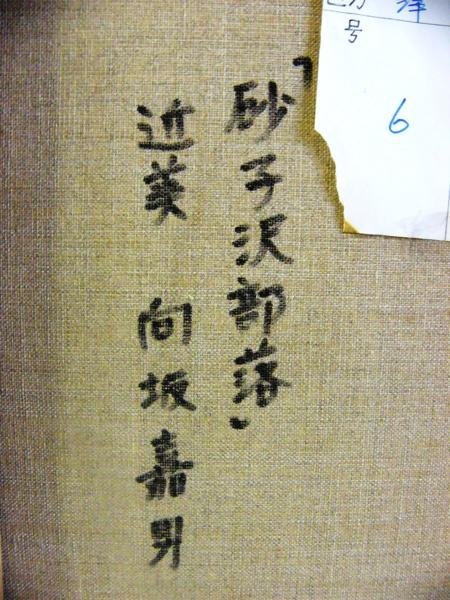 「砂子沢部落」
近美 向坂嘉男
洋
号
6